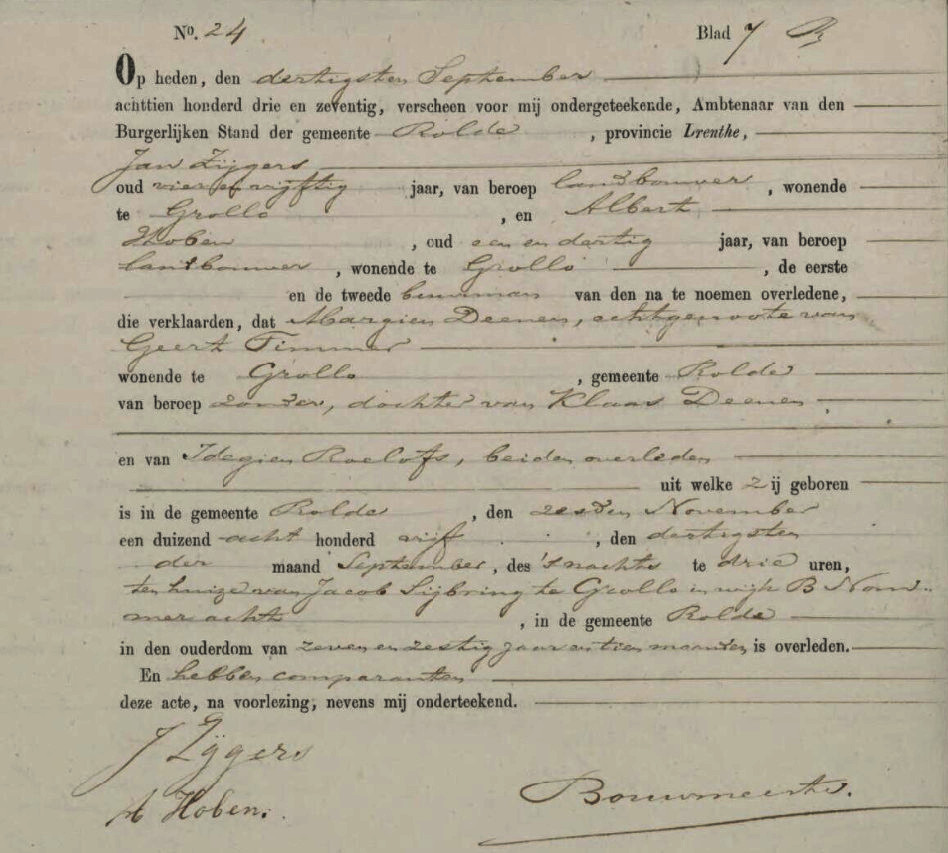 No. 24 Blad 7
Op heden, den dertigsten September
achttien honderd drie en zeventig, verscheen voor mij ondergeteekende, Ambtenaar van den
Burgerlijken Stand der gemeente Rolde, provincie Drenthe,
Jan Zijgers
oud vier en vijftig jaar, van beroep landbouwer, wonende
te Grollo, en Albert
Hoben, oud een en dertig jaar, van beroep
landbouwer, wonende te Grollo, de eerste
en de tweede buurman van den na te noemen overledene,
die verklaarden, dat Margien Deenen, echtgenoote van
Geert Timmer
wonende te Grollo, gemeente Rolde
van beroep zonder, dochter van Klaas Deenen
en van Idegien Roelofs, beiden overleden
uit welke zij geboren
is in de gemeente Rolde, den zesden November
een duizend acht honderd vijf, den dertigsten
der maand September, des 's nachts te drie uren,
ten huize van Jacob Sijbring te Grollo in wijk B Nom-
mer acht, in de gemeente Rolde
in den ouderdom van zeven en zestig jaar en tien maanden is overleden.
En hebben comparanten
deze acte, na voorlezing, nevens mij onderteekend.
J Zijgers
A Hoben.
Bouwmeester.